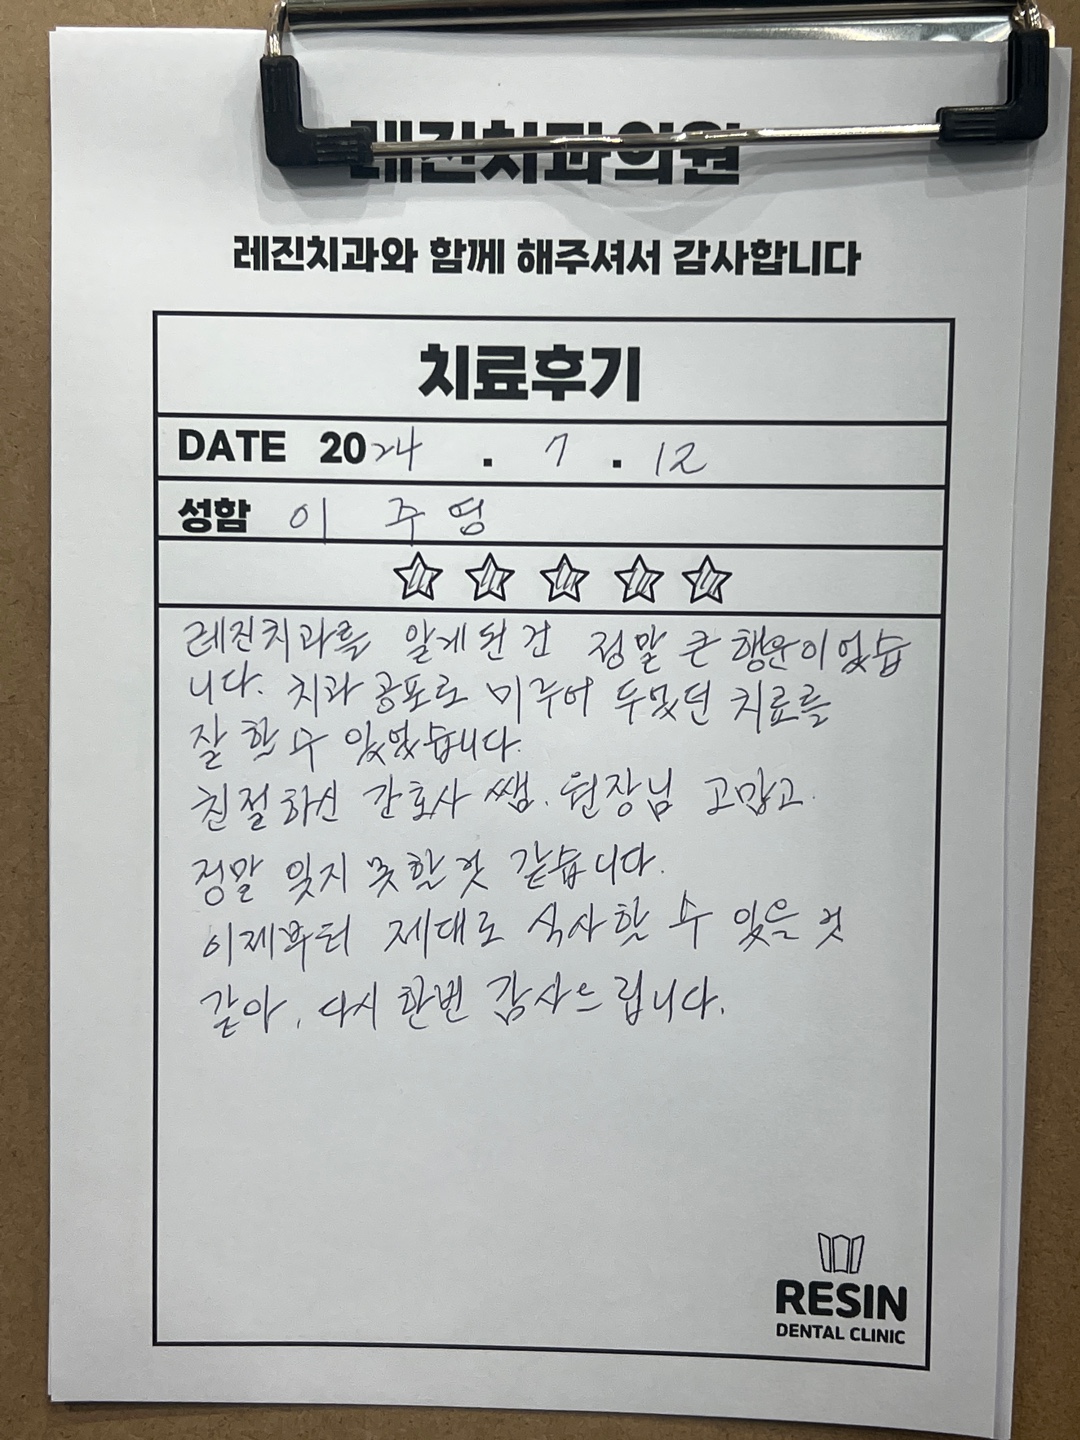 레진치과의원
레진치과와 함께 해주셔서 감사합니다
치료후기
DATE 2024 . 7 . 12
성함 이 주영
레진치과를 알게된 건 정말 큰 행운이었습
니다. 치과 공포로 미루어 두었던 치료를
잘 할 수 있었습니다.
친절하신 간호사 쌤. 원장님 고맙고.
정말 잊지 못할 것 같습니다.
이제부터 제대로 식사할 수 있을 것
같아, 다시 한번 감사드립니다.
RESIN
DENTAL CLINIC